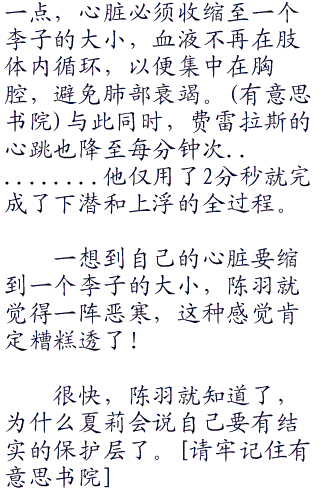 一点，心脏必须收缩至一个
李子的大小，血液不再在肢
体内循环，以便集中在胸
腔，避免肺部衰竭。(有意思
书院)与此同时，费雷拉斯的
心跳也降至每分钟次..
........他仅用了2分秒就完
成了下潜和上浮的全过程。
一想到自己的心脏要缩
到一个李子的大小，陈羽就
觉得一阵恶寒，这种感觉肯
定糟糕透了！
很快，陈羽就知道了，
为什么夏莉会说自己要有结
实的保护层了。[请牢记住有
意思书院]